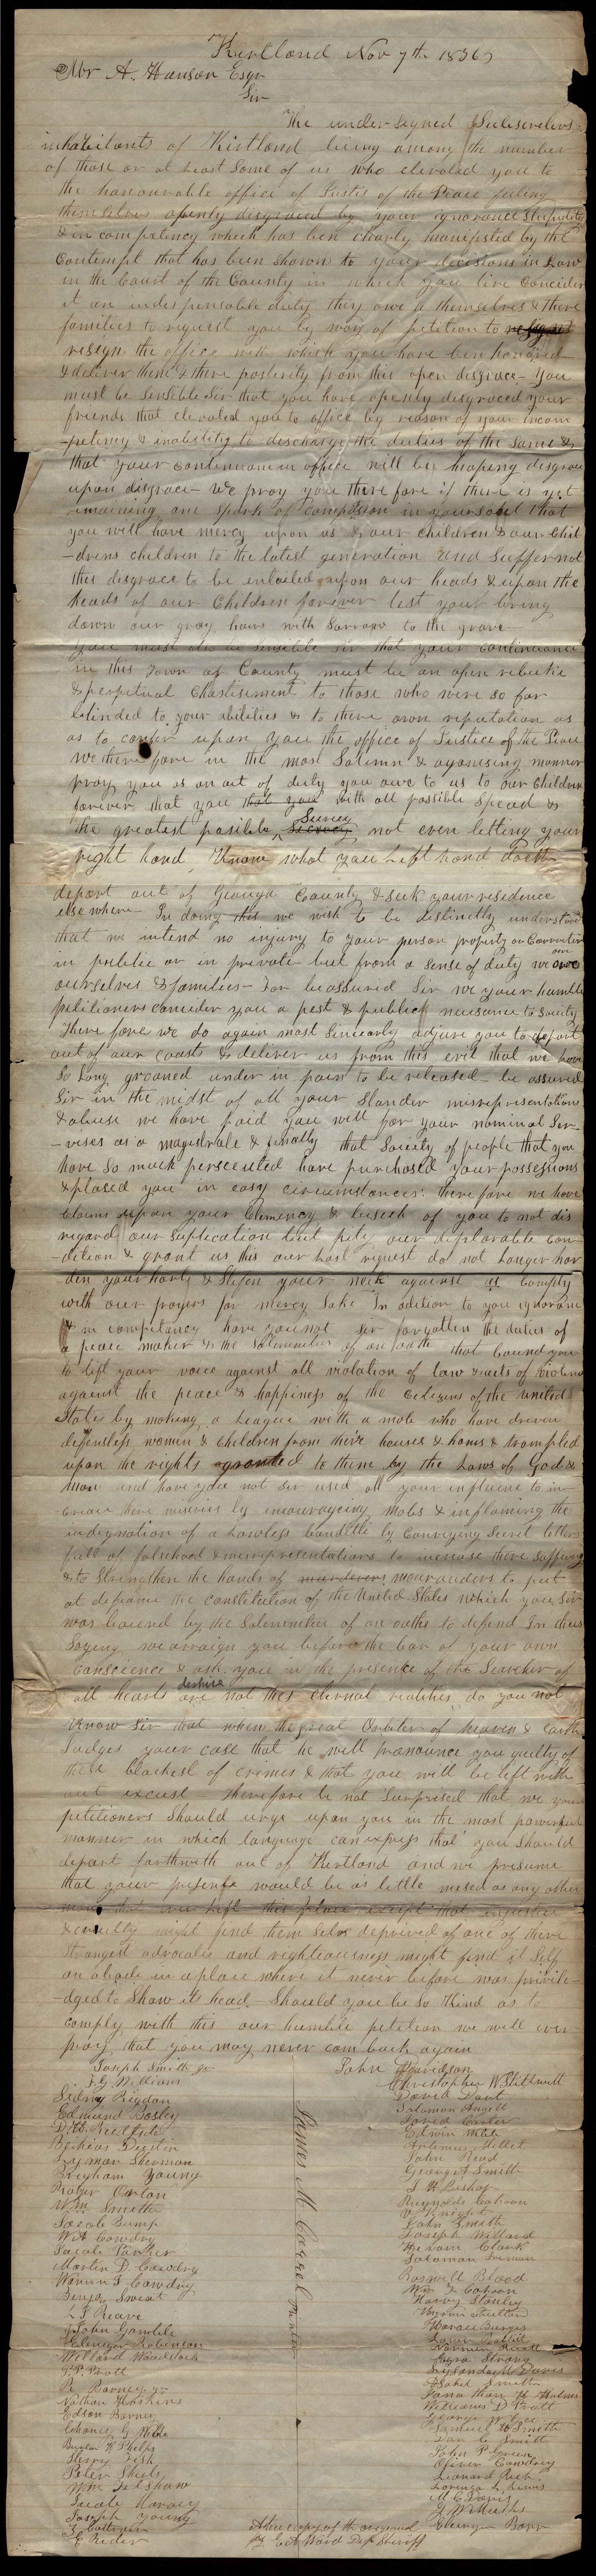 Kirtland Nov 7th 1836
Mr A. Hanson Esqr
Sir
The undersigned Subscribers
inhabitants of Kirtland being among the number
of those or at least Some of us who elevated you to
the honourable office of Justis of the Peace feeling
themselves openly disgraced by your ignorance Stupidity
& in competency which has ben clearly manifested by the
Contempt that has been shown to your decisions in Law
in the Court of the County in which you live Consider
it an indespensable duty they owe to themselves & there
families to request you by way of petition to
resign the office with which you have ben honored
& deliver them & there posterity from this open disgrace – You
must be Sensible Sir that you have openly disgraced your
friends that elevated you to office by reason of your incom
-petency & inability to discharge the duties of the Same &
that your Continuance in office will be heaping disgrace
upon disgrace – We pray you there fore if there is yet
remaining one Spark of Compassion in your Soul that
you will have mercy upon us & our Children & our Chil
-drens children to the latest generation and Suffer not
this disgrace to be entailed upon our heads & upon the
heads of our Children forever lest your bring
down our gray hairs with Sorrow to the grave –
You must also be Sensible Sir that your Continuance
in this Town or County must be an open rebuke
& perpetual Chastisement to those who were so far
blinded to your abilities & to there own reputation as
as to confer upon you the office of Justice of the Peace
We there fore in the most Solemn & agonising manner
pray you as an act of duty you owe to us to our Children
forever that you that you with all possible Speed &
the greatest posible Secrecy not even letting your
right hand Know what you Left hand doeth
depart out of Geauga County & seek your residence
else where – In doing this we wish to be distinctly understood
that we intend no injury to your person property or Carracter
in publick or in private but from a Sense of duty we owe
ourselves & families – For be assured Sir we your humble
petitioners consider you a pest & publick nuisance to Society
There fore we do again most Sincearly adjure you to depart
out of our coasts & deliver us from this evil that we have
So Long groaned under in pain to be released – be assured
Sir in the midst of all your Slander misrepresentation
& abuse we have paid you well for your nominal Ser-
-vises as a magistrate & finally that Society of people that you
have So much persecuted have purchased your possessions
& placed you in easy circumstances: therefore we have
Claims upon your Clemency & beseech of you to not dis
regard our Suplication but pity our deplorable con
-dition & grant us this our Last request do not Longer har
den your hart & Stifen your neck against us Comply
with our prayers for mercy Sake In adition to you ignorance
& in competancy have you not Sir forgotten the duties of
a peace maker & the Solemnities of an oath that bound you
to lift your voice against all violation of law & acts of violence
against the peace & happiness of the Citizens of the United
States by making a League with a mob who have driven
defensless women & Children from their houses & homes & trampled
upon the rights granted to them by the Laws of God &
man and have you not Sir used all your influence to in-
crease there miseries by encouraging Mobs & inflaming the
indignation of a Lawless banditte by Conveying Secret letters
full of falsehood & misrepresentations to increase there Suffering
& to Strengthen the hands of murderers marauders to put
at defiance the constitution of the United States which you Sir
was bound by the Solemnities of an oaths to defend In thus
Saying we arraign you before the bar of your own
conscience & ask you in the presence of the Searcher of
all hearts are not thes eternal realities do you not
Know Sir that when the great Arbiter of heaven & Earth
Judges your case that he will pronounce you guilty of
the blackest of crimes & that you will be left with
out excuse – therefore be not Surprised that we your
petitioners Should urge upon you in the most powerful
manner in which language can express that you Should
depart forthwith out of Kirtland and we presume
that your presense would be as little missed as any other
man that ever Left this place except that injustice
& cruelty might find them Selvs deprived of one of there
strongest advocates and righteousness might find it Self
an abode in a place where it never before was privile-
-dged to Shaw its head – Should you be so Kind as to
comply with this our humble petition we will ever
pray that you may never com back again
Joseph Smith Jr
F. G. Williams
Sidney Rigdon
Edmund Bosley
Lyman Sherman
Brigham Young
Roger Orton
Wm Smith
Jacob Bump
W A Cowdry
Martin D. Cowdry
Warren F Cowdry
Benja Sweat
John Gamble
Ebenezer Robinson
P. P. Pratt
R Barney Jr
Nathan Haskins
Edson Barney
Chancy G Webb
Sherry Fish
Peter Shirts
Wm Felshaw
Joseph Young
James M. Carrel Printer
John Davidson
Christopher W Stillwell
David Dort
Solomon Angell
Jared Carter
Edwin Webb
Artemus Millet
John Read
George A Smith
Reynolds Cahoon
V Knight
John Smith
Joseph Willard
Hiram Clark
Solomon Freeman
Roswell Blood
Wm F Cahoon
Harvy Stanley
Horace Burges
Ezra Strong
Lysander M Davis
Asahel Smith
Jonathan H Holmes
Williams D Pratt
Samuel H Smith
Don C Smith
John P Green
Oliver Cowdry
Leonard Rich
Lorenzo L Lewis
M C Davis
A true copy of the original
by E A Ward Dep Sheriff